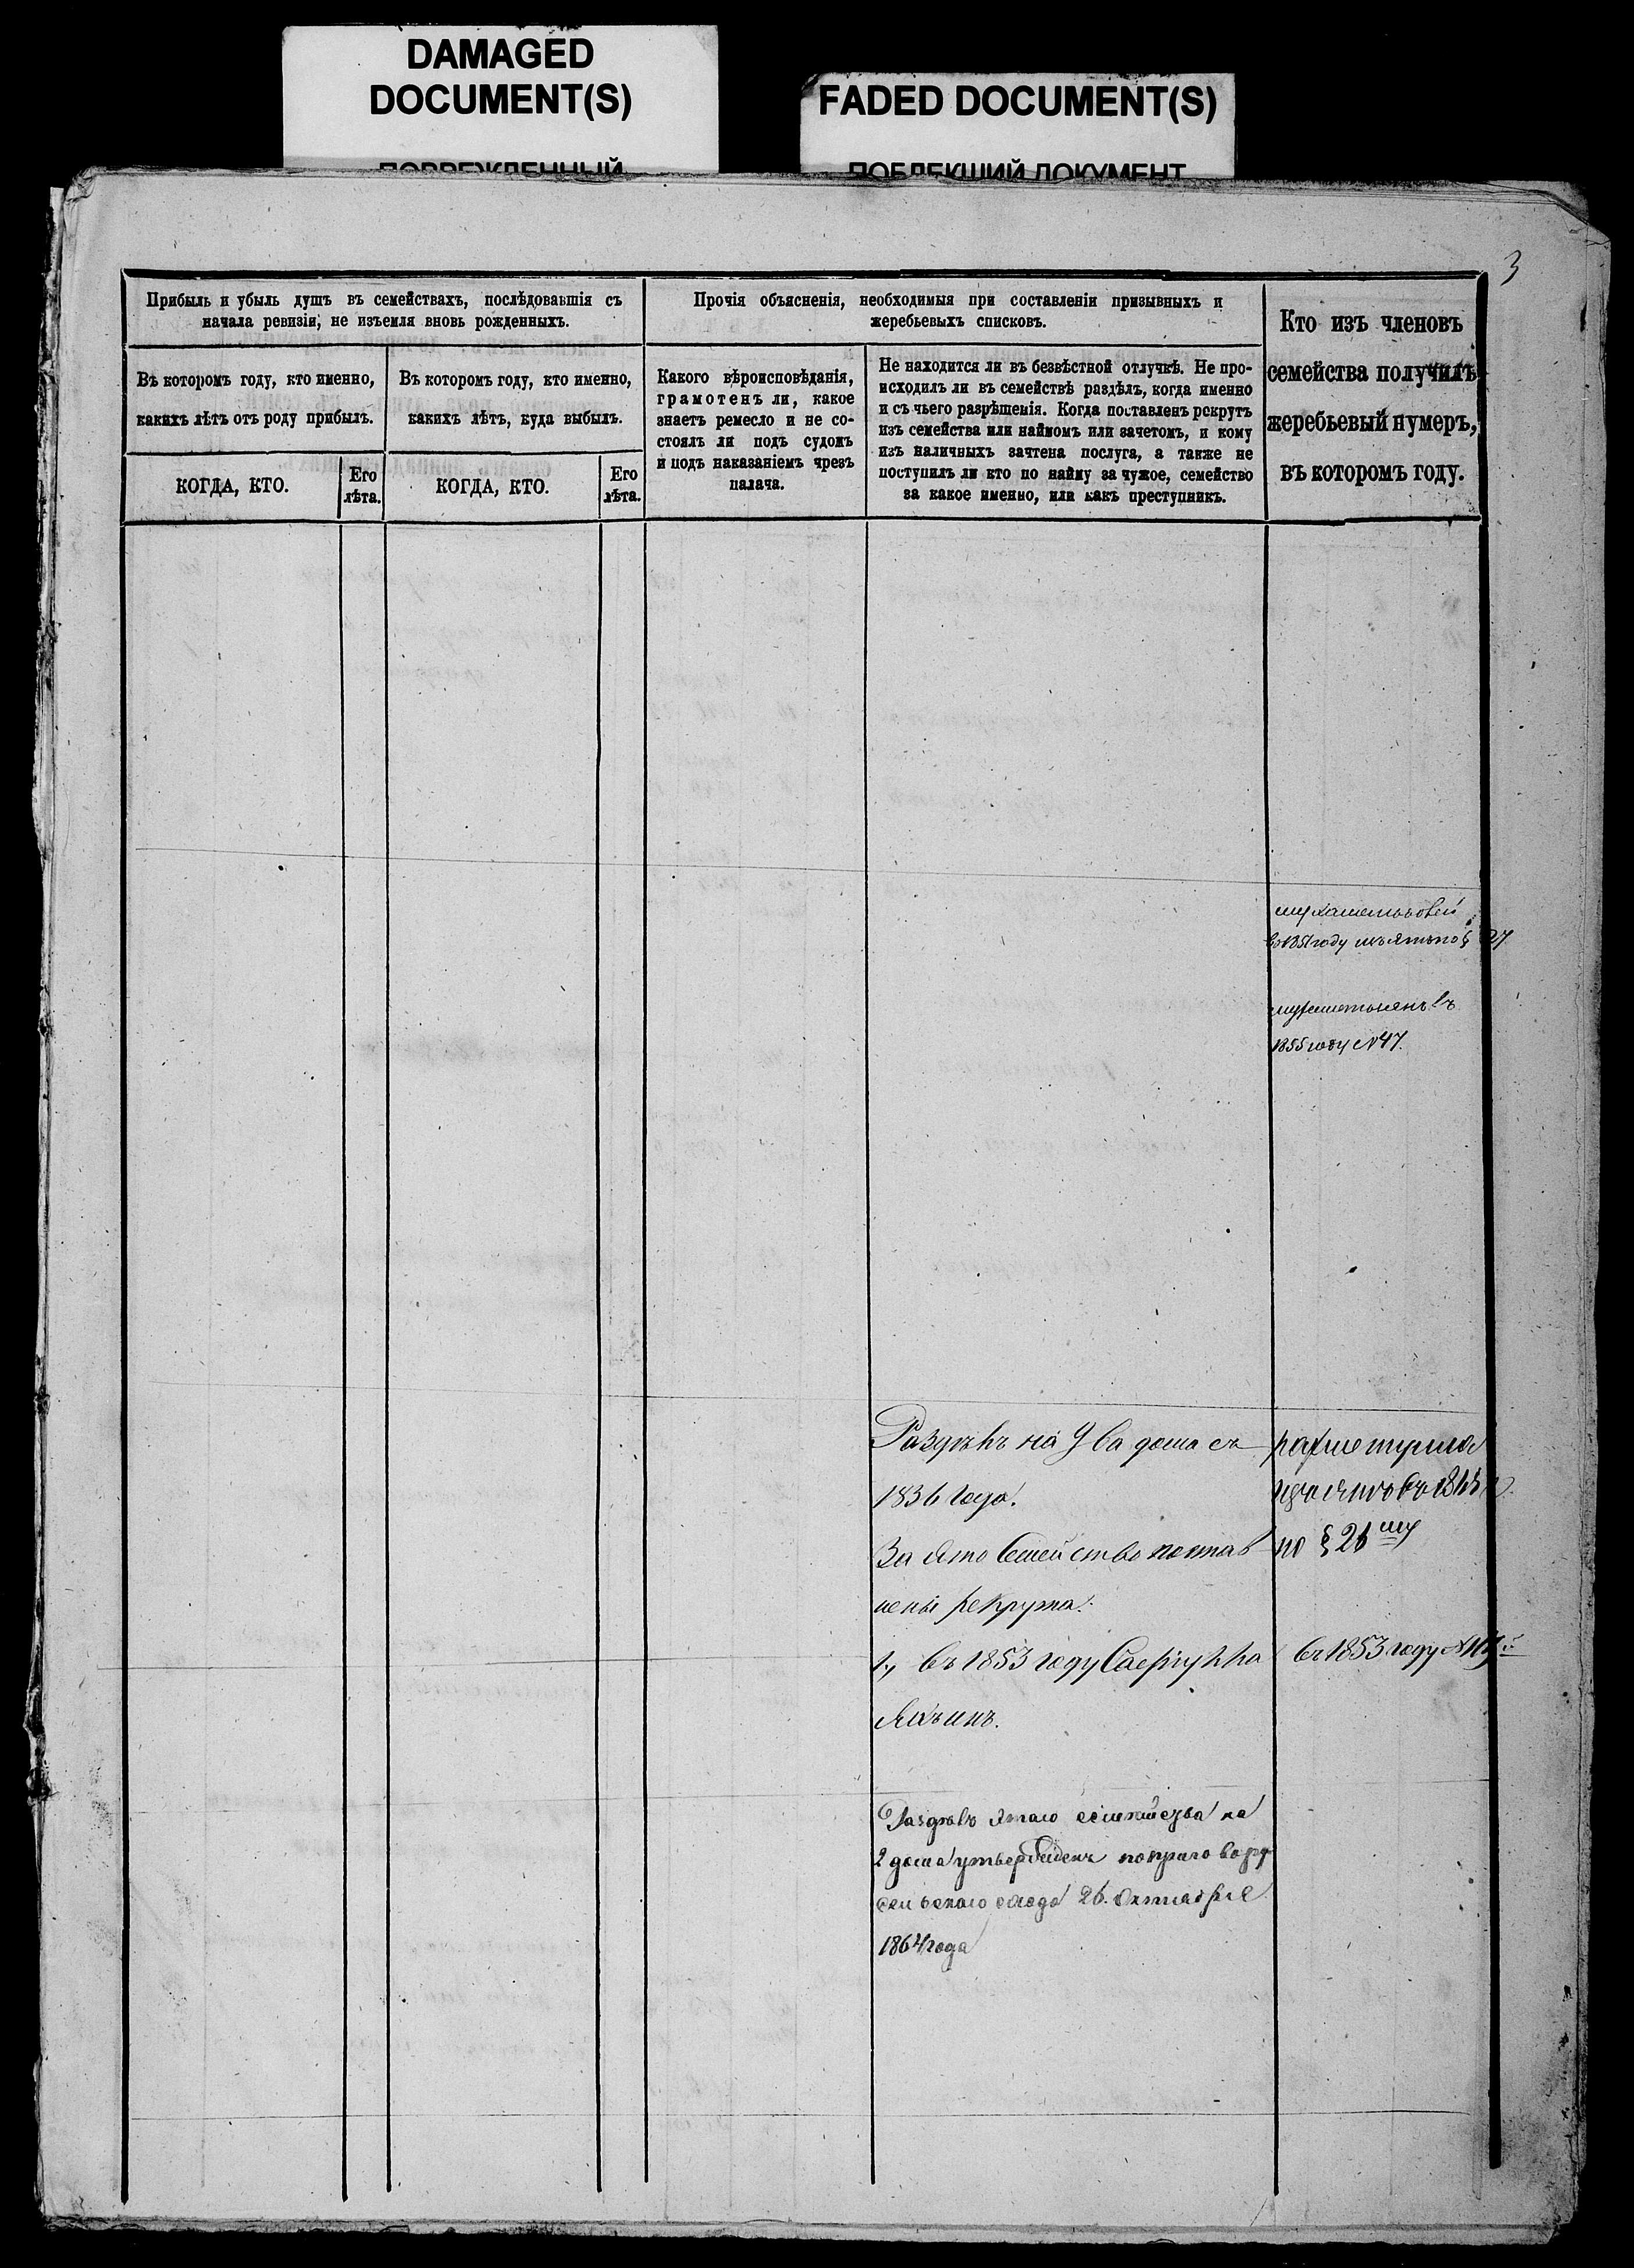 DAMAGED
DOCUMENT(S)
ПОВРЕЖДЕННЫЙ
FADED DOCUMENT(S)
ПОБЛЕКШИЙ ДОКУМЕНТ
3
Прибыль и убыль душъ въ семействахъ, послѣдовавшія съ
начала ревизіи, не изъемля вновь рожденныхъ.
Въ которомъ году, кто именно,
какихъ лѣтъ отъ роду прибылъ.
КОГДА, КТО.
Его
лѣта.
Въ которомъ году, кто именно,
какихъ лѣтъ, куда выбылъ.
КОГДА, КТО.
Его
лѣта.
Прочія объясненія, необходимыя при составленіи призывныхъ и
жеребьевыхъ списковъ.
Какого вѣроисповѣданія,
грамотенъ ли, какое
знаетъ ремесло и не со-
стоялъ ли подъ судомъ
и подъ наказаніемъ чрезъ
палача.
Не находится ли въ безвѣстной отлучкѣ. Не про-
исходилъ ли въ семействѣ раздѣлъ, когда именно
и съ чьего разрѣшенія. Когда поставленъ рекрутъ
изъ семейства или наймомъ или зачетомъ, и кому
изъ наличныхъ зачтена послуга, а также не
поступилъ ли кто по найму за чужое, семейство
за какое именно, или какъ преступникъ.
Кто изъ членовъ
семейства получилъ
жеребьевый нумеръ,
въ которомъ году.
году 27
въ
1855 году №47.
Раздѣлъ на два дома съ
1836 года.
За это Семейство поставлены
рекрута.
1, въ 1853 году
по § 26му
въ 1853 году
Раздѣлъ этаго семейства на
2 дома утвержденъ по приговору
сельскаго схода 26. Октября
1864 года